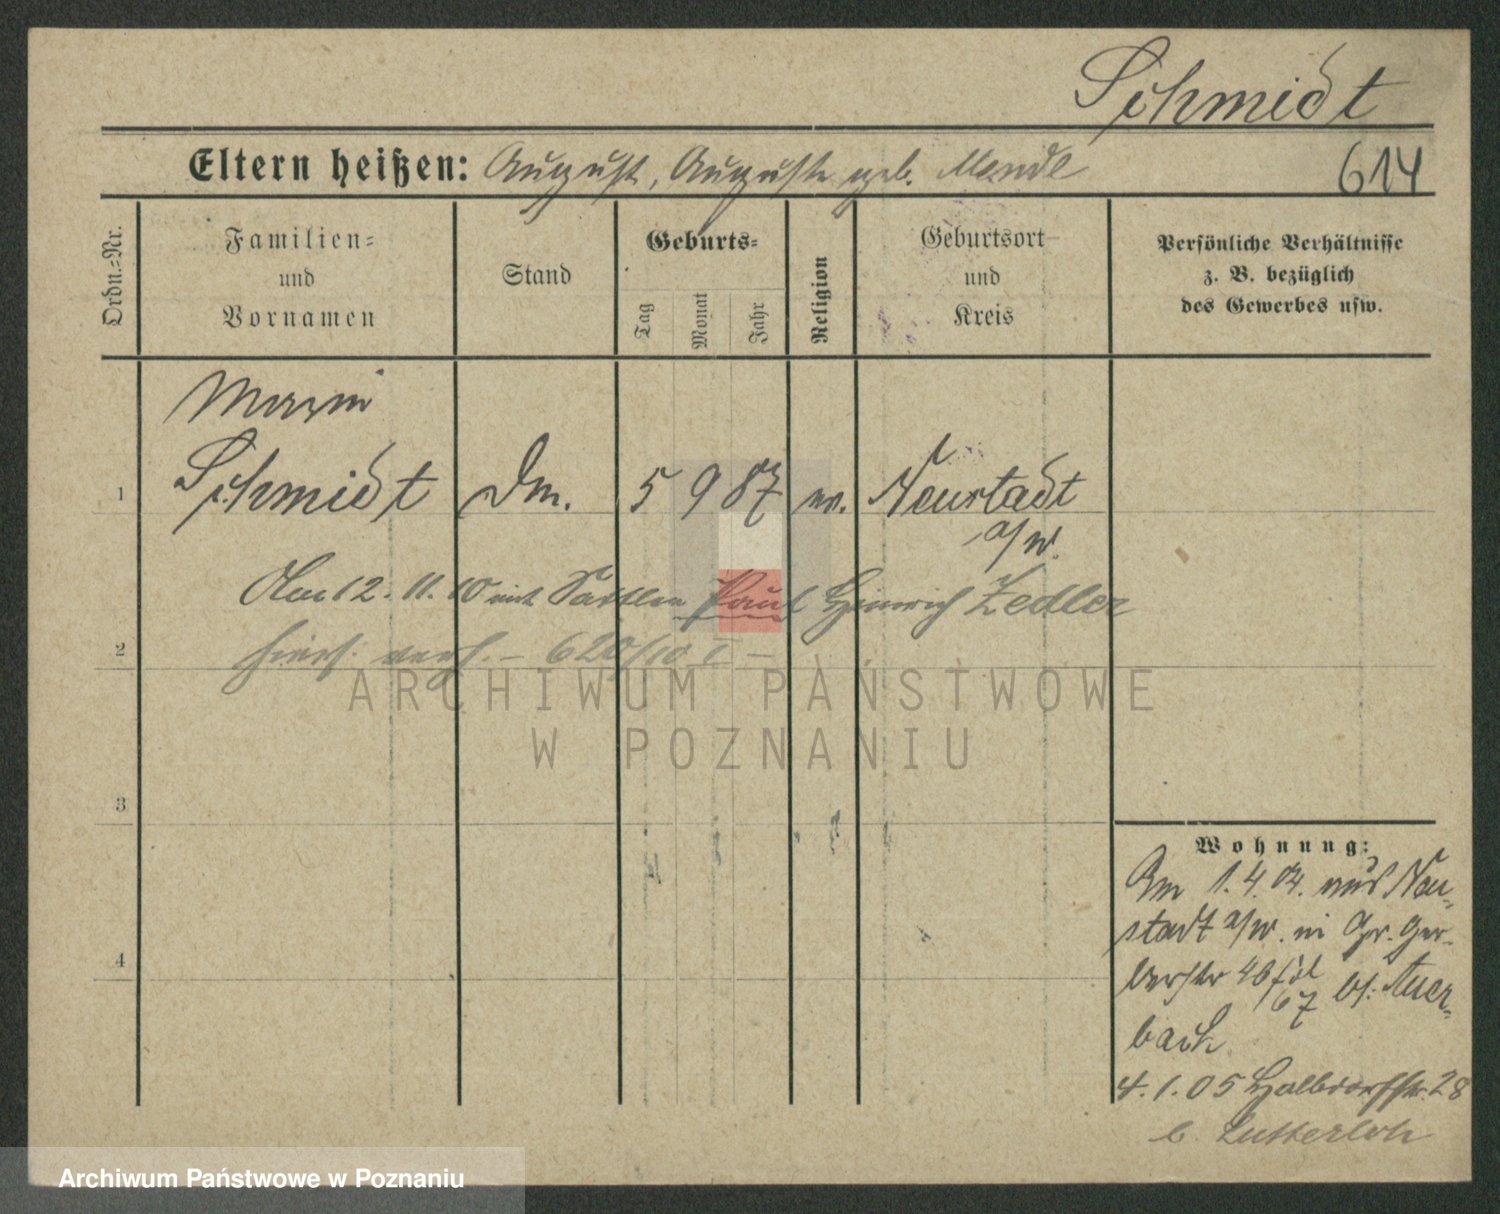 Schmidt
Eltern heißen: August, Auguste geb. Mandl
614
Ordn.-Nr.
Familien-
und
Vornamen
Stand
Geburts-
Tag
Monat
Jahr
Religion
Geburtsort
und
Kreis
Persönliche Verhältnisse
z. B. bezüglich
des Gewerbes usw.
1
Schmidt
Dm.
5 9 87
ev.
Neustadt
a/W.
Am 12. 11. 10 mit Sattler Paul Heinrich Zedler
2
hiers. verh. – 620/10 I –
ARCHIWUM PAŃSTWOWE
W POZNANIU
3
4
Wohnung:
Am 1. 4. 04. aus Neu-
stadt a/W. in Gr. Ger-
berstr 46
67 bs: Auer-
bach
4. 1. 05 Halbdorfstr. 28
b. Lutterloh
Archiwum Państwowe w Poznaniu